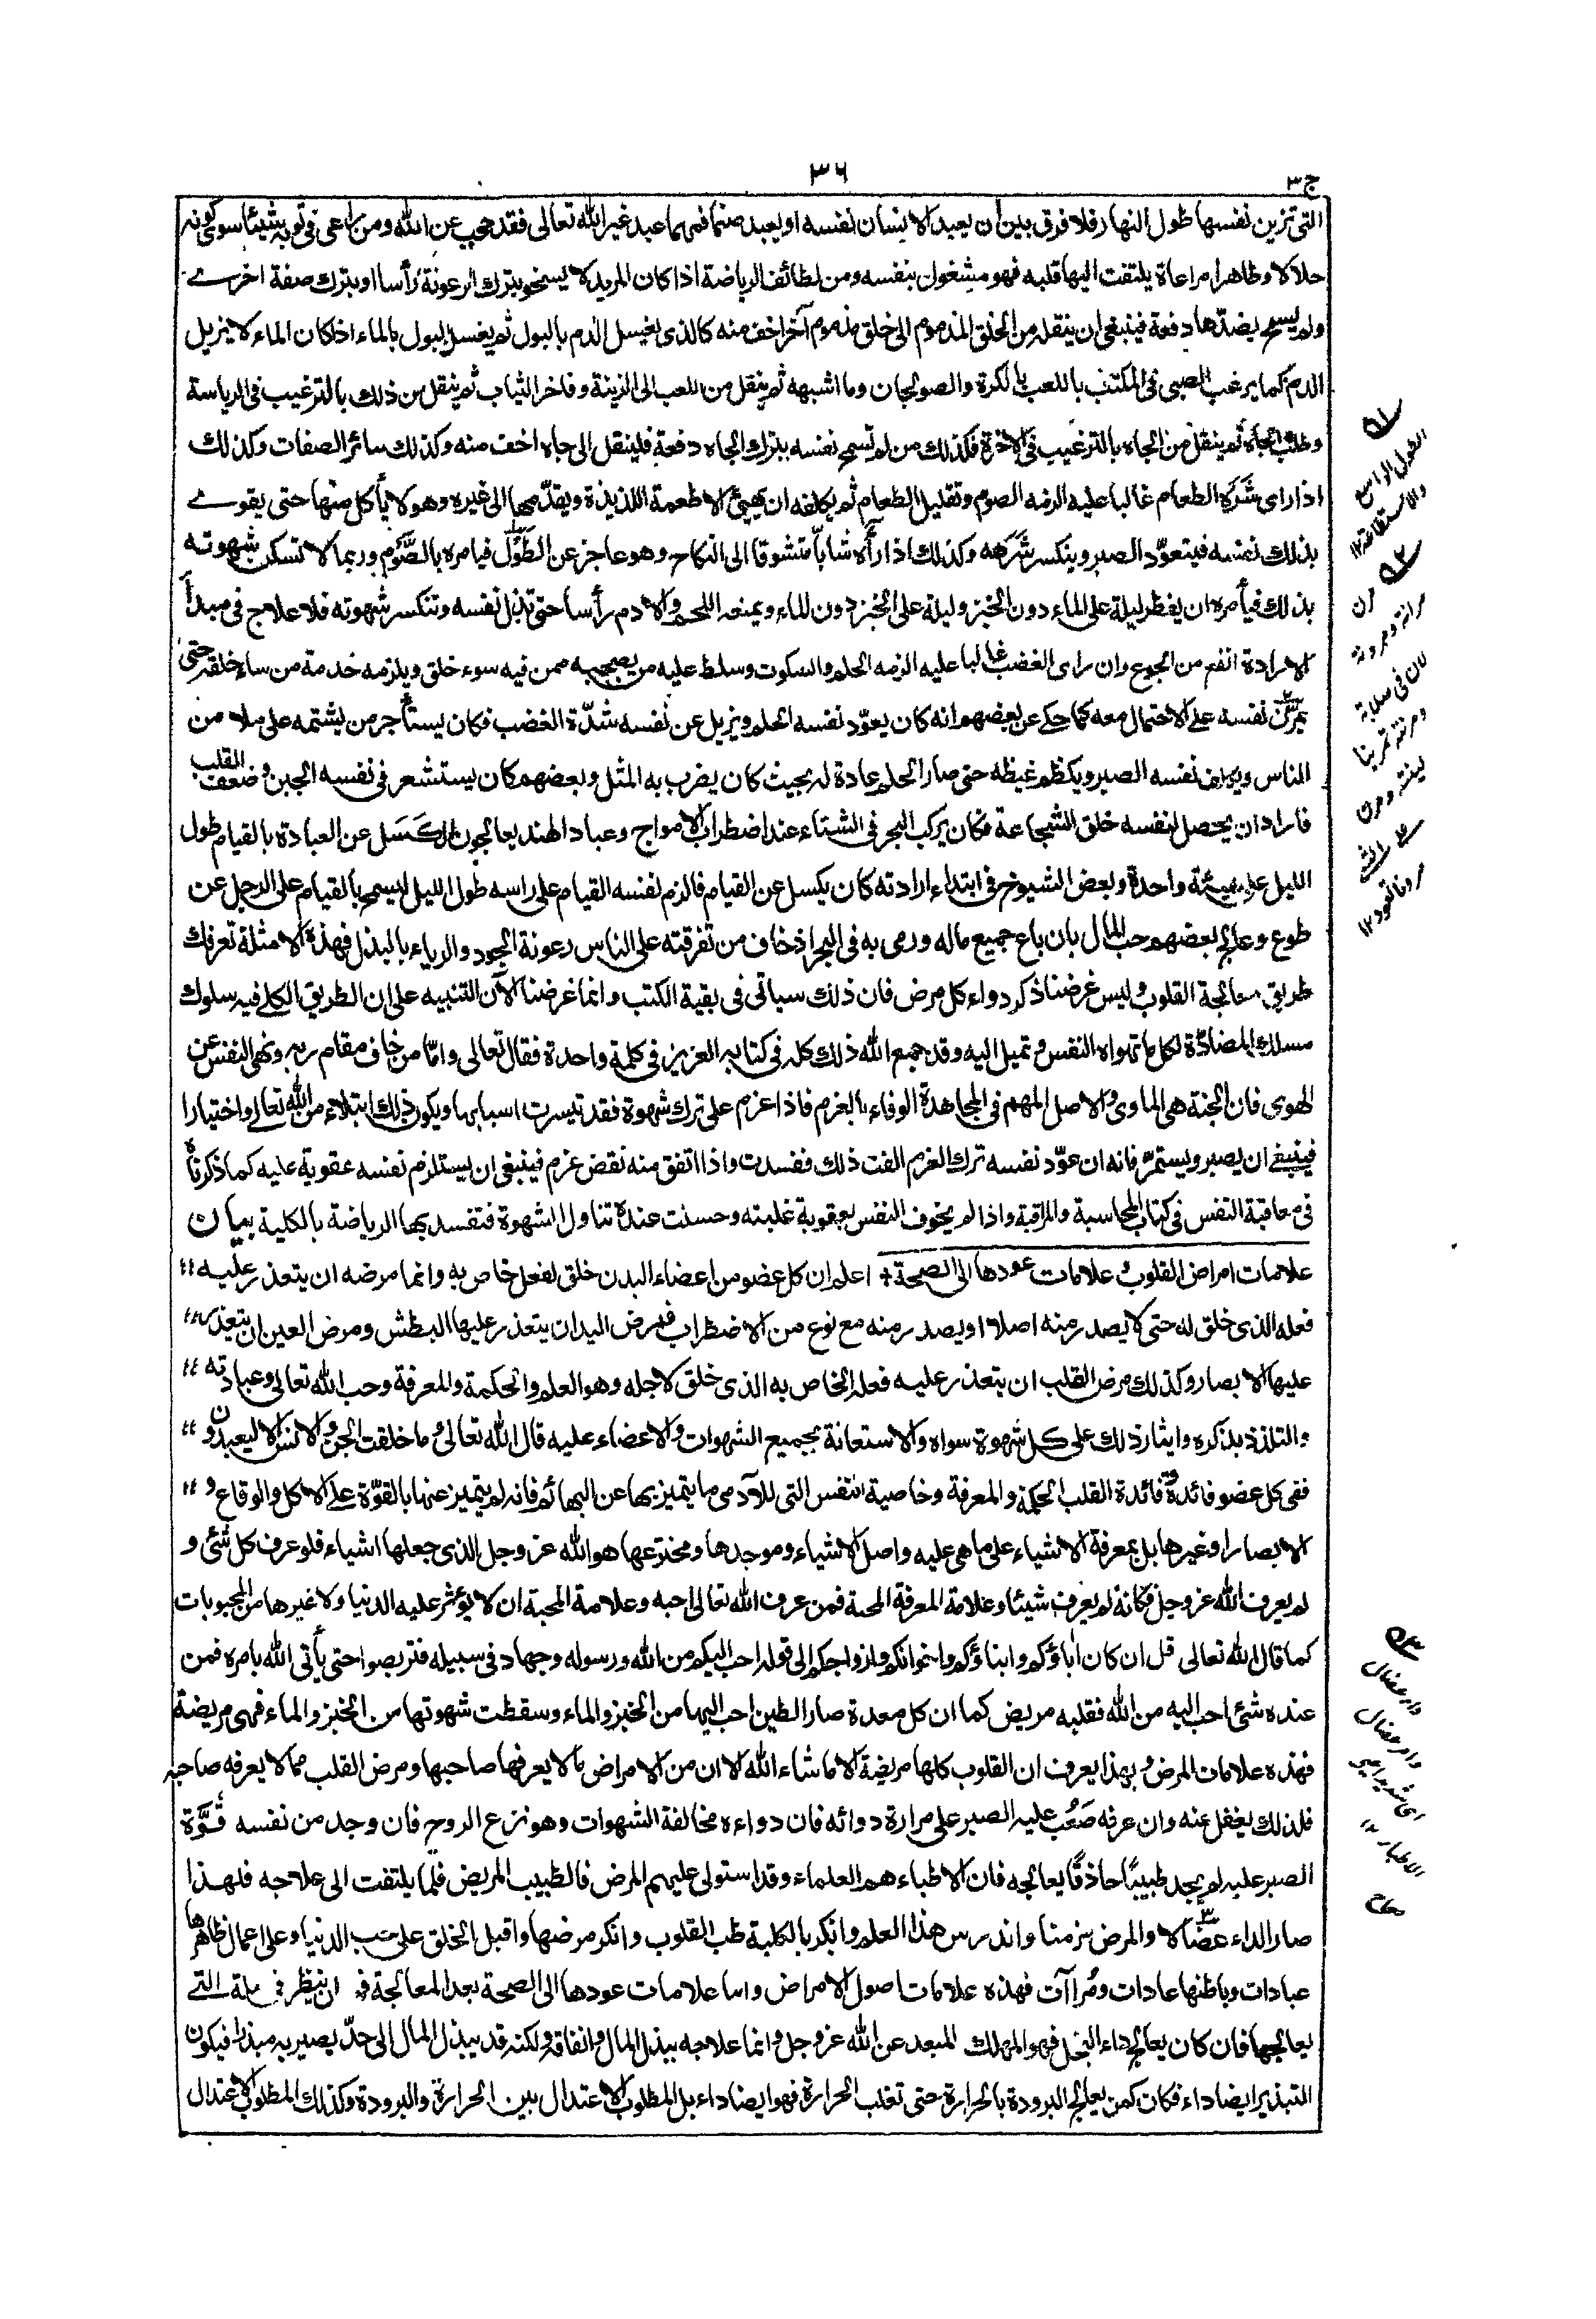 ٣٦
ج ٣
التى تزين نفسها طول النهار فلا فرق بين ان يعبد الانسان نفسه او يعبد صنما فمهما عبد غير الله تعالى فقد حجب عن الله ومن راعى فى ثوبه شيئا سوى كونه
حلالا وطاهرا مراعاة يلتفت اليها قلبه فهو مشغول بنفسه ومن لطائف الرياضة اذا كان المريد لا يسخو بترك الرعونة رأسا او بترك صفة اخرے
ولم يسمح بضدّها دفعة فينبغى ان ينقله من الخلق المذموم الى خلق مذموم آخر اخف منه كالذى يغسل الدم بالبول ثم يغسل البول بالماء اذا كان الماء لا يزيل
الدم كما يرغب الصبى فى المكتب باللعب بالكرة والصولجان وما اشبهه ثم ينقل من اللعب الى الزينة وفاخر الثياب ثم ينقل من ذلك بالترغيب فى الرياسة
وطلب الجاه ثم ينقل من الجاه بالترغيب فى الاخرة فكذلك من لم تسمح نفسه بترك الجاه دفعة فلينقل الى جاه اخف منه وكذلك سائر الصفات وكذلك
اذا راى شَرَه الطعام غالبا عليه الزمه الصوم وتقليل الطعام ثم يكلفه ان يهيئ الاطعمة اللذيذة ويقدّمها الى غيره وهو لا يأكل منها حتى يقوے
بذلك نفسه فيتعوّد الصبر وينكسر شَرَهه وكذلك اذا رأٰه شابّا متشوقا الى النكاح وهو عاجز عن الطَّوْل فيامره بالصَّوْم وربما لا تسكن شهوته
بذلك فيأمره ان يفطر ليلة على الماء دون الخبز وليلة على الخبز دون الماء ويمنعه اللحم والادم رأسا حتى تذل نفسه وتنكسر شهوته فلا علاج فى مبدأ
الارادة انفع من الجوع وان راى الغضب غالبا عليه الزمه الحلم والسكوت وسلط عليه من يصحبه ممن فيه سوء خلق ويلزمه خدمة من ساء خلقه حتى
يمرّن نفسه على الاحتمال معه كما حكے عن بعضهم انه كان يعوّد نفسه الحلم ويزيل عن نفسه شدّة الغضب فكان يستأجر من يشتمه على ملا من
الناس ويكلف نفسه الصبر ويكظم غيظه حتى صار الحلم عادة له بحيث كان يضرب به المثل وبعضهم كان يستشعر فى نفسه الجبن وضعف القلب
فاراد ان يحصل لنفسه خلق الشجاعة فكان يركب البحر فى الشتاء عند اضطراب الامواج وعباد الهند يعالجون الكَسَل عن العبادة بالقيام طول
الليل على هيئة واحدة وبعض الشيوخ فى ابتداء ارادته كان يكسل عن القيام فالزم نفسه القيام على راسه طول الليل ليسمح بالقيام على الرجل عن
طوع وعالج بعضهم حب المال بان باع جميع ماله ورمى به فى البحر اذ خاف من تفرقته على الناس رعونة الجود والرياء بالبذل فهذه الامثلة تعرفك
طريق معالجة القلوب وليس غرضنا ذكر دواء كل مرض فان ذلك سياتى فى بقية الكتب وانما غرضنا الآن التنبيه على ان الطريق الكلے فيه سلوك
مسلك المضادّة لكل ما تهواه النفس وتميل اليه وقد جمع الله ذلك كله فى كتابه العزيز فى كلمة واحدة فقال تعالى وامّا من خاف مقام ربه ونهى النفس عن
الهوى فان الجنة هى الماوى والاصل المهم فى المجاهدة الوفاء بالعزم فاذا عزم على ترك شهوة فقد تيسرت اسبابها ويكون ذلك ابتلاء من الله تعالے واختيارا
فينبغى ان يصبر ويستمرّ فانه ان عوّد نفسه ترك العزم الفت ذلك ففسدت واذا اتفق منه نقض عزم فينبغى ان يستلزم نفسه عقوبة عليه كما ذكرناه
فى معاقبة النفس فى كتاب المحاسبة والمراقبة واذا لم يخوف النفس بعقوبة غلبته وحسنت عنده تناول الشهوة فتفسد بها الرياضة بالكلية بيان
علامات امراض القلوب وعلامات عودها الى الصحة + اعلم ان كل عضو من اعضاء البدن خلق لفعل خاص به وانما مرضه ان يتعذر عليه
فعله الذى خلق له حتى لا يصدر منه اصلا او يصدر منه مع نوع من الاضطراب فمرض اليد ان يتعذر عليها البطش ومرض العين ان يتعذر
عليها الابصار وكذلك مرض القلب ان يتعذر عليه فعله الخاص به الذى خلق لاجله وهو العلم والحكمة والمعرفة وحب الله تعالى وعبادته
والتلذذ بذكره وايثار ذلك على كل شهوة سواه والاستعانة بجميع الشهوات والاعضاء عليه قال الله تعالى وما خلقت الجن والانس الا ليعبدون و
ففى كل عضو فائدة وفائدة القلب الحكمة والمعرفة وخاصية النفس التى للآدمى ما يتميز بها عن البهائم فانه لم يتميز عنها بالقوّة على الاكل والوقاع و
الابصار او غيرها بل بمعرفة الاشياء على ما هى عليه واصل الاشياء وموجدها ومخترعها هو الله عز وجل الذى جعلها اشياء فلو عرف كل شئ و
لم يعرف الله عز وجل فكانه لم يعرف شيئا وعلامة المعرفة المحبة فمن عرف الله تعالى احبه وعلامة المحبة ان لا يؤثر عليه الدنيا ولا غيرها من المحبوبات
كما قال الله تعالى قل ان كان اٰباؤكم وابناؤكم واخوانكم وازواجكم الى قوله احب اليكم من الله ورسوله وجهاد فى سبيله فتربصوا حتى يأتى الله بامره فمن
عنده شئ احب اليه من الله فقلبه مريض كما ان كل معدة صار الطين احب اليها من الخبز والماء وسقطت شهوتها من الخبز والماء فهى مريضة
فهذه علامات المرض وبهذا يعرف ان القلوب كلها مريضة الا ما شاء الله الا ان من الامراض ما لا يعرفها صاحبها ومرض القلب مما لا يعرفه صاحبه
فلذلك يغفل عنه وان عرفه صَعُب عليه الصبر على مرارة دوائه فان دواءه مخالفة الشهوات وهو نزع الروح فان وجد من نفسه قُوَّة
الصبر عليه لم يجد طبيبًا حاذقًا يعالجه فان الاطباء هم العلماء وقد استولى عليهم المرض فالطبيب المريض قلما يلتفت الى علاجه فلهذا
صار الداء عضالا والمرض مزمنا واندرس هذا العلم وانكر بالكلية طب القلوب وانكر مرضها واقبل الخلق على حب الدنيا وعلى اعمال ظاهرها
عبادات وباطنها عادات ومُراآت فهذه علامات اصول الامراض واما علامات عودها الى الصحة بعد المعالجة ان ينظر فى التے
يعالجها فان كان يعالج داء البخل فهو المهلك المبعد عن الله عز وجل وانما علاجه ببذل المال وانفاقه ولكنه قد يبذل المال الى حدّ يصير به مبذرا فيكون
التبذير ايضا داء فكان كمن يعالج البرودة بالحرارة حتى تغلب الحرارة فهو ايضا داء بل المطلوب الاعتدال بين الحرارة والبرودة وكذلك المطلوب الاعتدال
الطول الواسع
والاستطاعة ١٢
مرن
مرانة ومرونة
لان فى صلابة
ومرنته تمرينا
لينته ومرن
على الشئ
مرونا تعود ١٢
داء عضال
صحاح